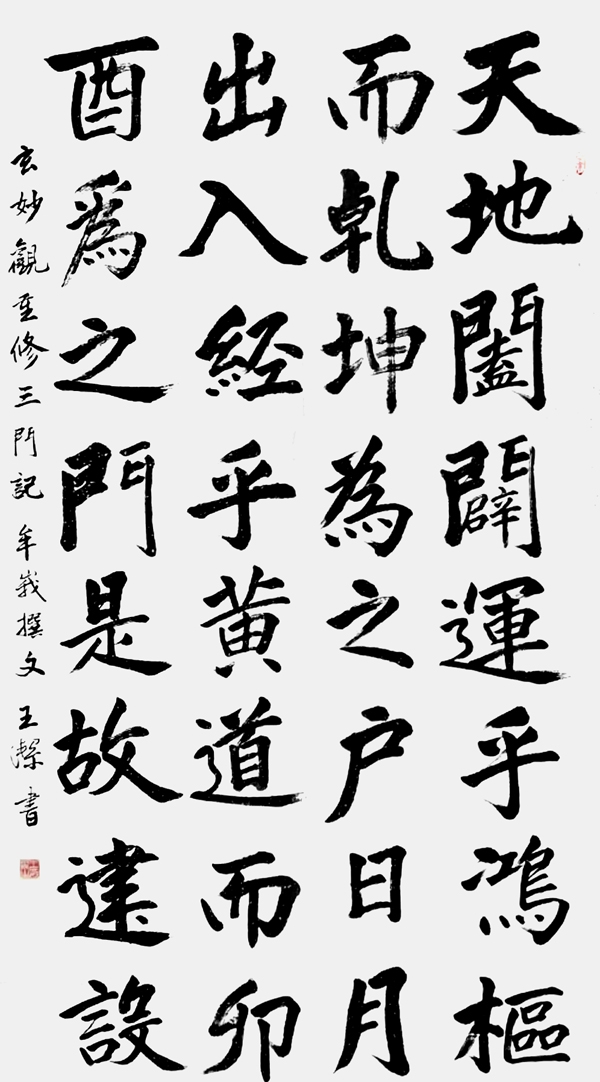 天地闔闢運乎鴻樞
而乹坤為之户日月
出入經乎黄道而卯
酉爲之門是故建設
玄妙觀重修三門記 牟巘撰文 王潔書